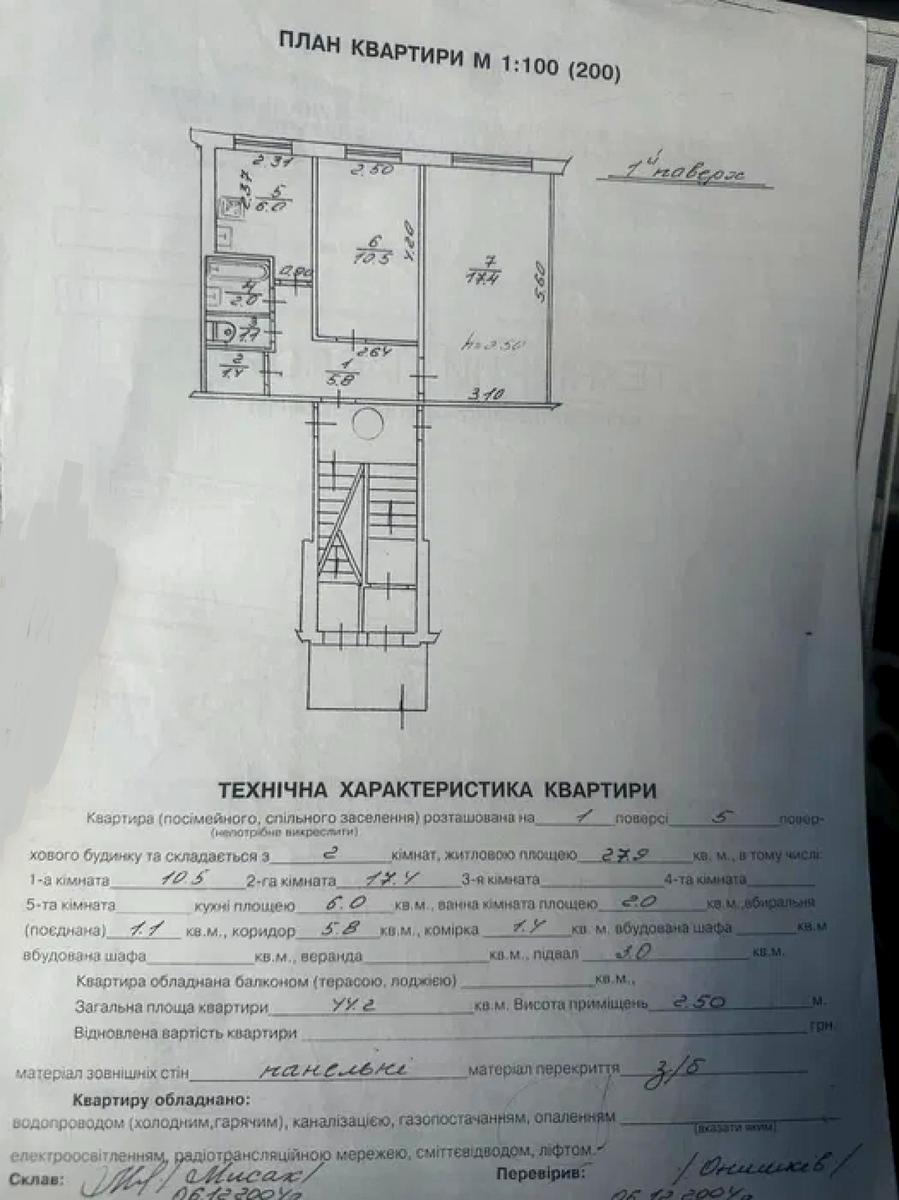 ПЛАН КВАРТИРИ М 1:100 (200)
1й поверх
2.31
2.50
2.37
5
6.0
6
10.5
4.20
7
17.4
5.60
0.90
4
2.0
3
1.1
2.64
h=2.50
2
1.4
1
5.8
3.10
ТЕХНІЧНА ХАРАКТЕРИСТИКА КВАРТИРИ
Квартира (посімейного, спільного заселення) розташована на 1 поверсі 5 повер-
(непотрібне викреслити)
хового будинку та складається з 2 кімнат, житловою площею 27.9 кв. м., в тому числі:
1-а кімната 10.5 2-га кімната 17.4 3-я кімната 4-та кімната
5-та кімната кухні площею 6.0 кв.м., ванна кімната площею 2.0 кв.м.,вбиральня
(поєднана) 1.1 кв.м., коридор 5.8 кв.м., комірка 1.4 кв. м. вбудована шафа кв.м
вбудована шафа кв.м., веранда кв.м., підвал 3.0 кв.м.
Квартира обладнана балконом (терасою, лоджією) кв.м.,
Загальна площа квартири 44.2 кв.м. Висота приміщень 2.50 м.
Відновлена вартість квартири грн.
матеріал зовнішніх стін панельні матеріал перекриття з/б
Квартиру обладнано:
водопроводом (холодним,гарячим), каналізацією, газопостачанням, опаленням
(вказати яким)
електроосвітленням, радіотрансляційною мережею, сміттєвідводом, ліфтом.
Склав: /Мисак/ Перевірив: /Онишків/
06.12.2004р 06.12.2004р